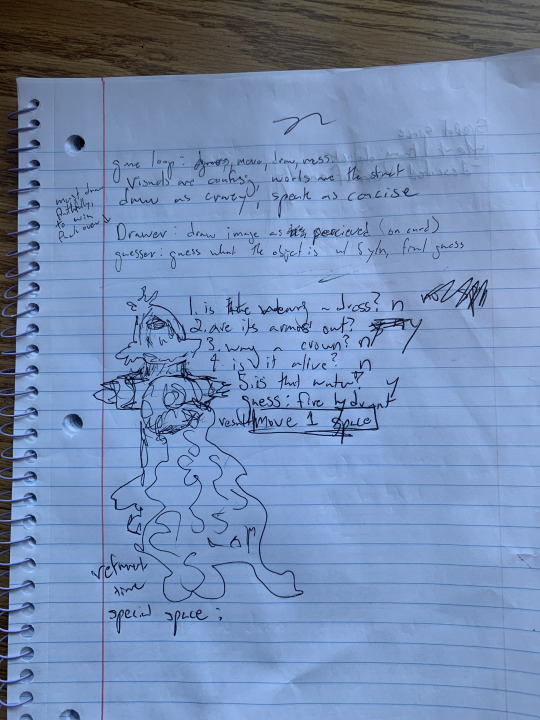 game loop: guess, move, draw, mess.
Visuals are confusing, words are the street
draw as crazy, speak as concise
must draw
faithfully,
to win
Drawer: draw image as percieved (on card)
guesser: guess what the object is w/ 5 y/n, final guess
1. is it wearing a dress? n
2. are its arms out? y
3. wearing a crown? n
4. is it alive? n
5. is that water? y
guess: fire hydrant
result: move 1 space
time
special space: